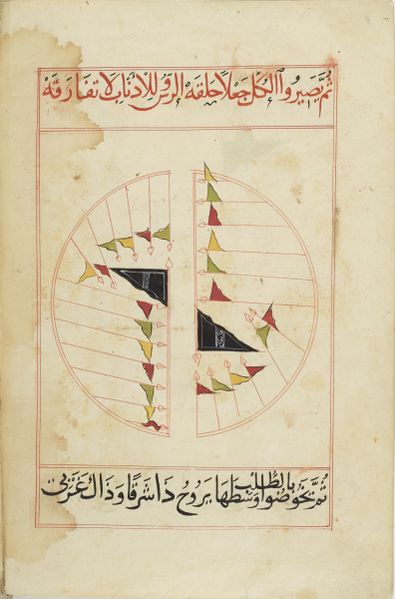 ثُمَّ يصيروا الكل جعلا حلقه الروس للاذناب لا تفارقه
ثُمَّ يخوضوا بالطلب وسطها يروح ذا شرقا وذاك غربي